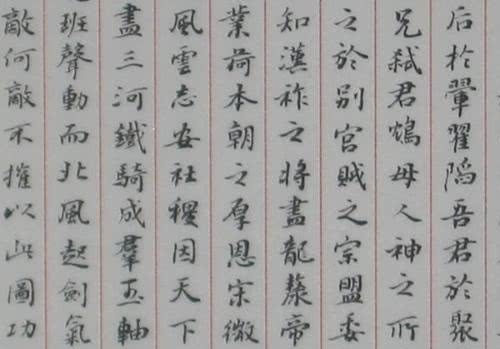 后於翬翟陷吾君於聚
兄弒君鴆母人神之所
之於別宮賊之宗盟委
知漢祚之將盡龍漦帝
業荷本朝之厚恩宋微
風雲志安社稷因天下
盡三河鐵騎成羣玉軸
班聲動而北風起劍氣
敵何敵不摧以此圖功